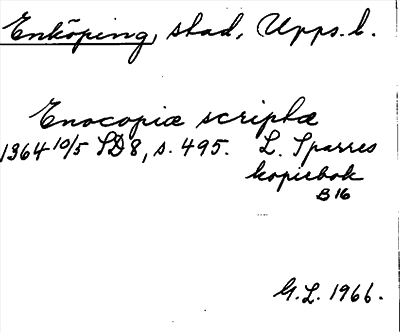 Enköping, stad, Upps. l.
Enocopiæ scriptæ
1364 10/5 SD 8, s. 495. L. Sparres
kopiebok
B 16
G.L. 1966.